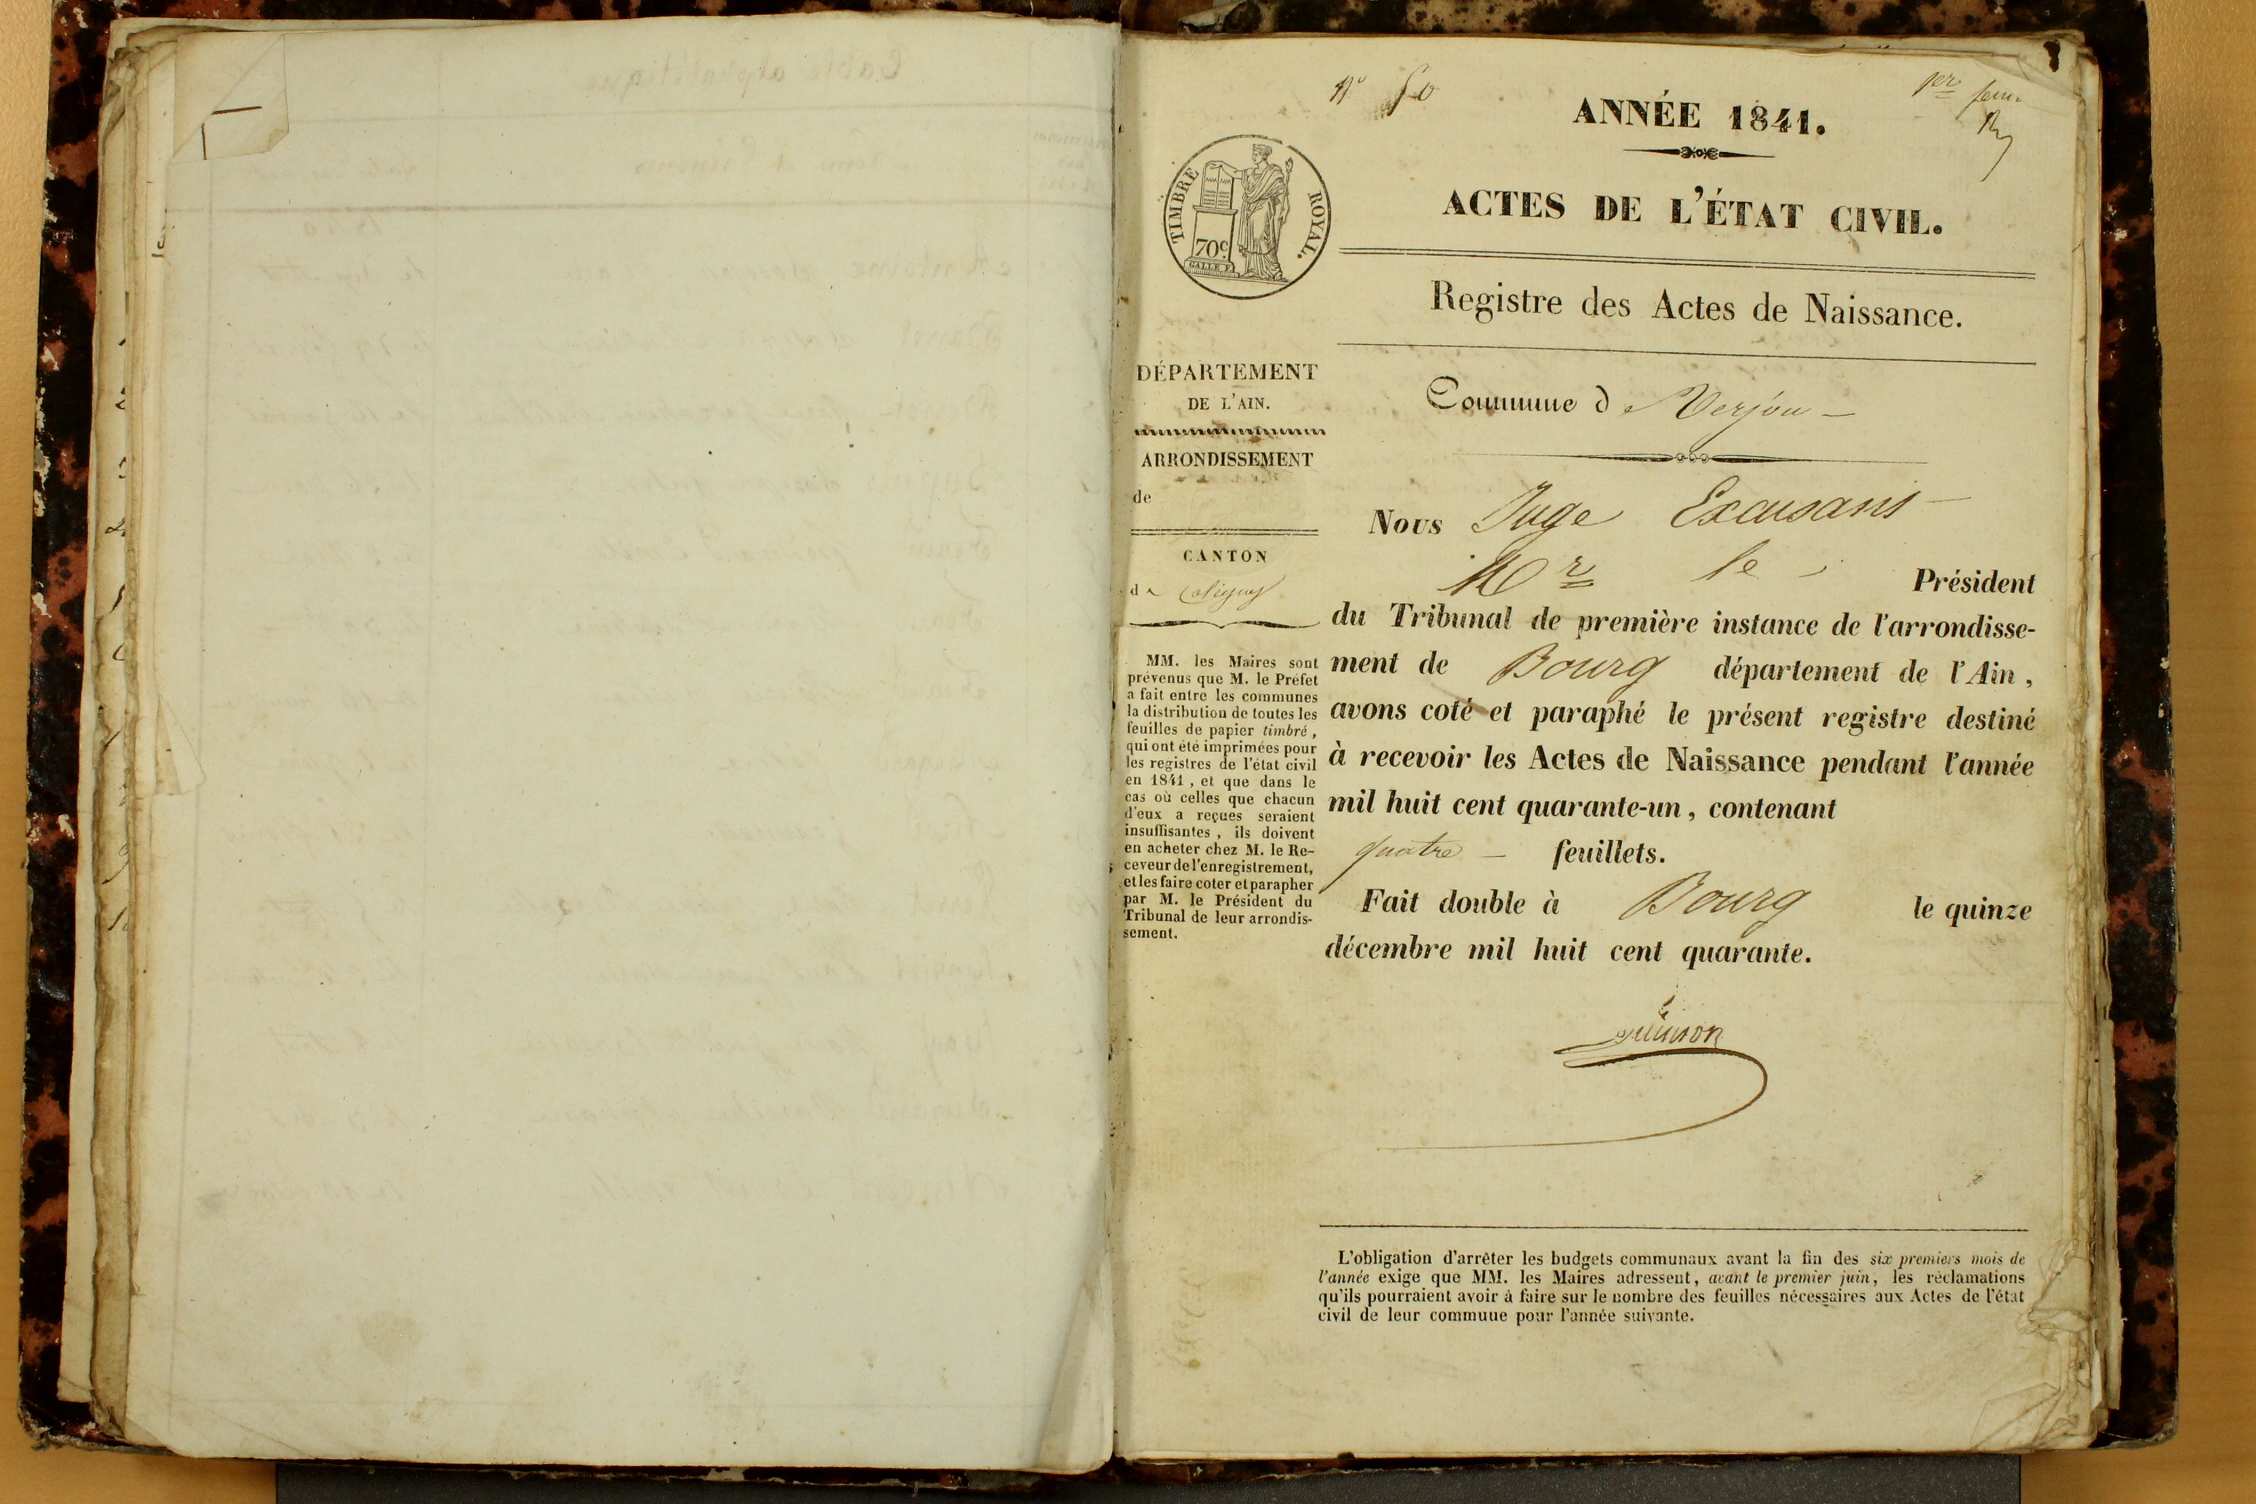 Nº 50
1er feuil.
ANNÉE 1841.
ACTES DE L'ÉTAT CIVIL.
TIMBRE ROYAL.
70c.
Registre des Actes de Naissance.
DÉPARTEMENT
DE L'AIN.
ARRONDISSEMENT
de
CANTON
de Coligny
MM. les Maires sont
prévenus que M. le Préfet
a fait entre les communes
la distribution de toutes les
feuilles de papier timbré,
qui ont été imprimées pour
les registres de l'état civil
en 1841, et que dans le
cas où celles que chacun
d'eux a reçues seraient
insuffisantes, ils doivent
en acheter chez M. le Re-
ceveur de l'enregistrement,
et les faire coter et parapher
par M. le Président du
Tribunal de leur arrondis-
sement.
Commune de Verjon
Nous Juge Excusans
Mr le Président
du Tribunal de première instance de l'arrondisse-
ment de Bourg département de l'Ain,
avons coté et paraphé le présent registre destiné
à recevoir les Actes de Naissance pendant l'année
mil huit cent quarante-un, contenant
quatre feuillets.
Fait double à Bourg le quinze
décembre mil huit cent quarante.
L'obligation d'arrêter les budgets communaux avant la fin des six premiers mois de
l'année exige que MM. les Maires adressent, avant le premier juin, les réclamations
qu'ils pourraient avoir à faire sur le nombre des feuilles nécessaires aux Actes de l'état
civil de leur commune pour l'année suivante.